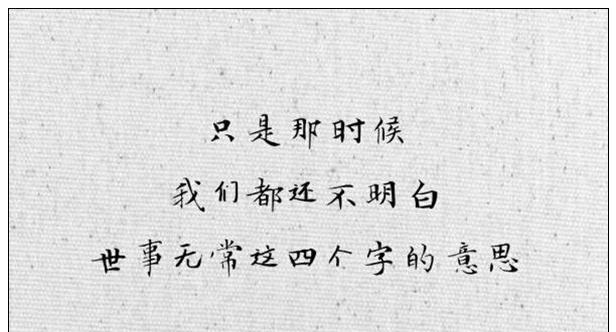 只是那时候
我们都还不明白
世事无常这四个字的意思